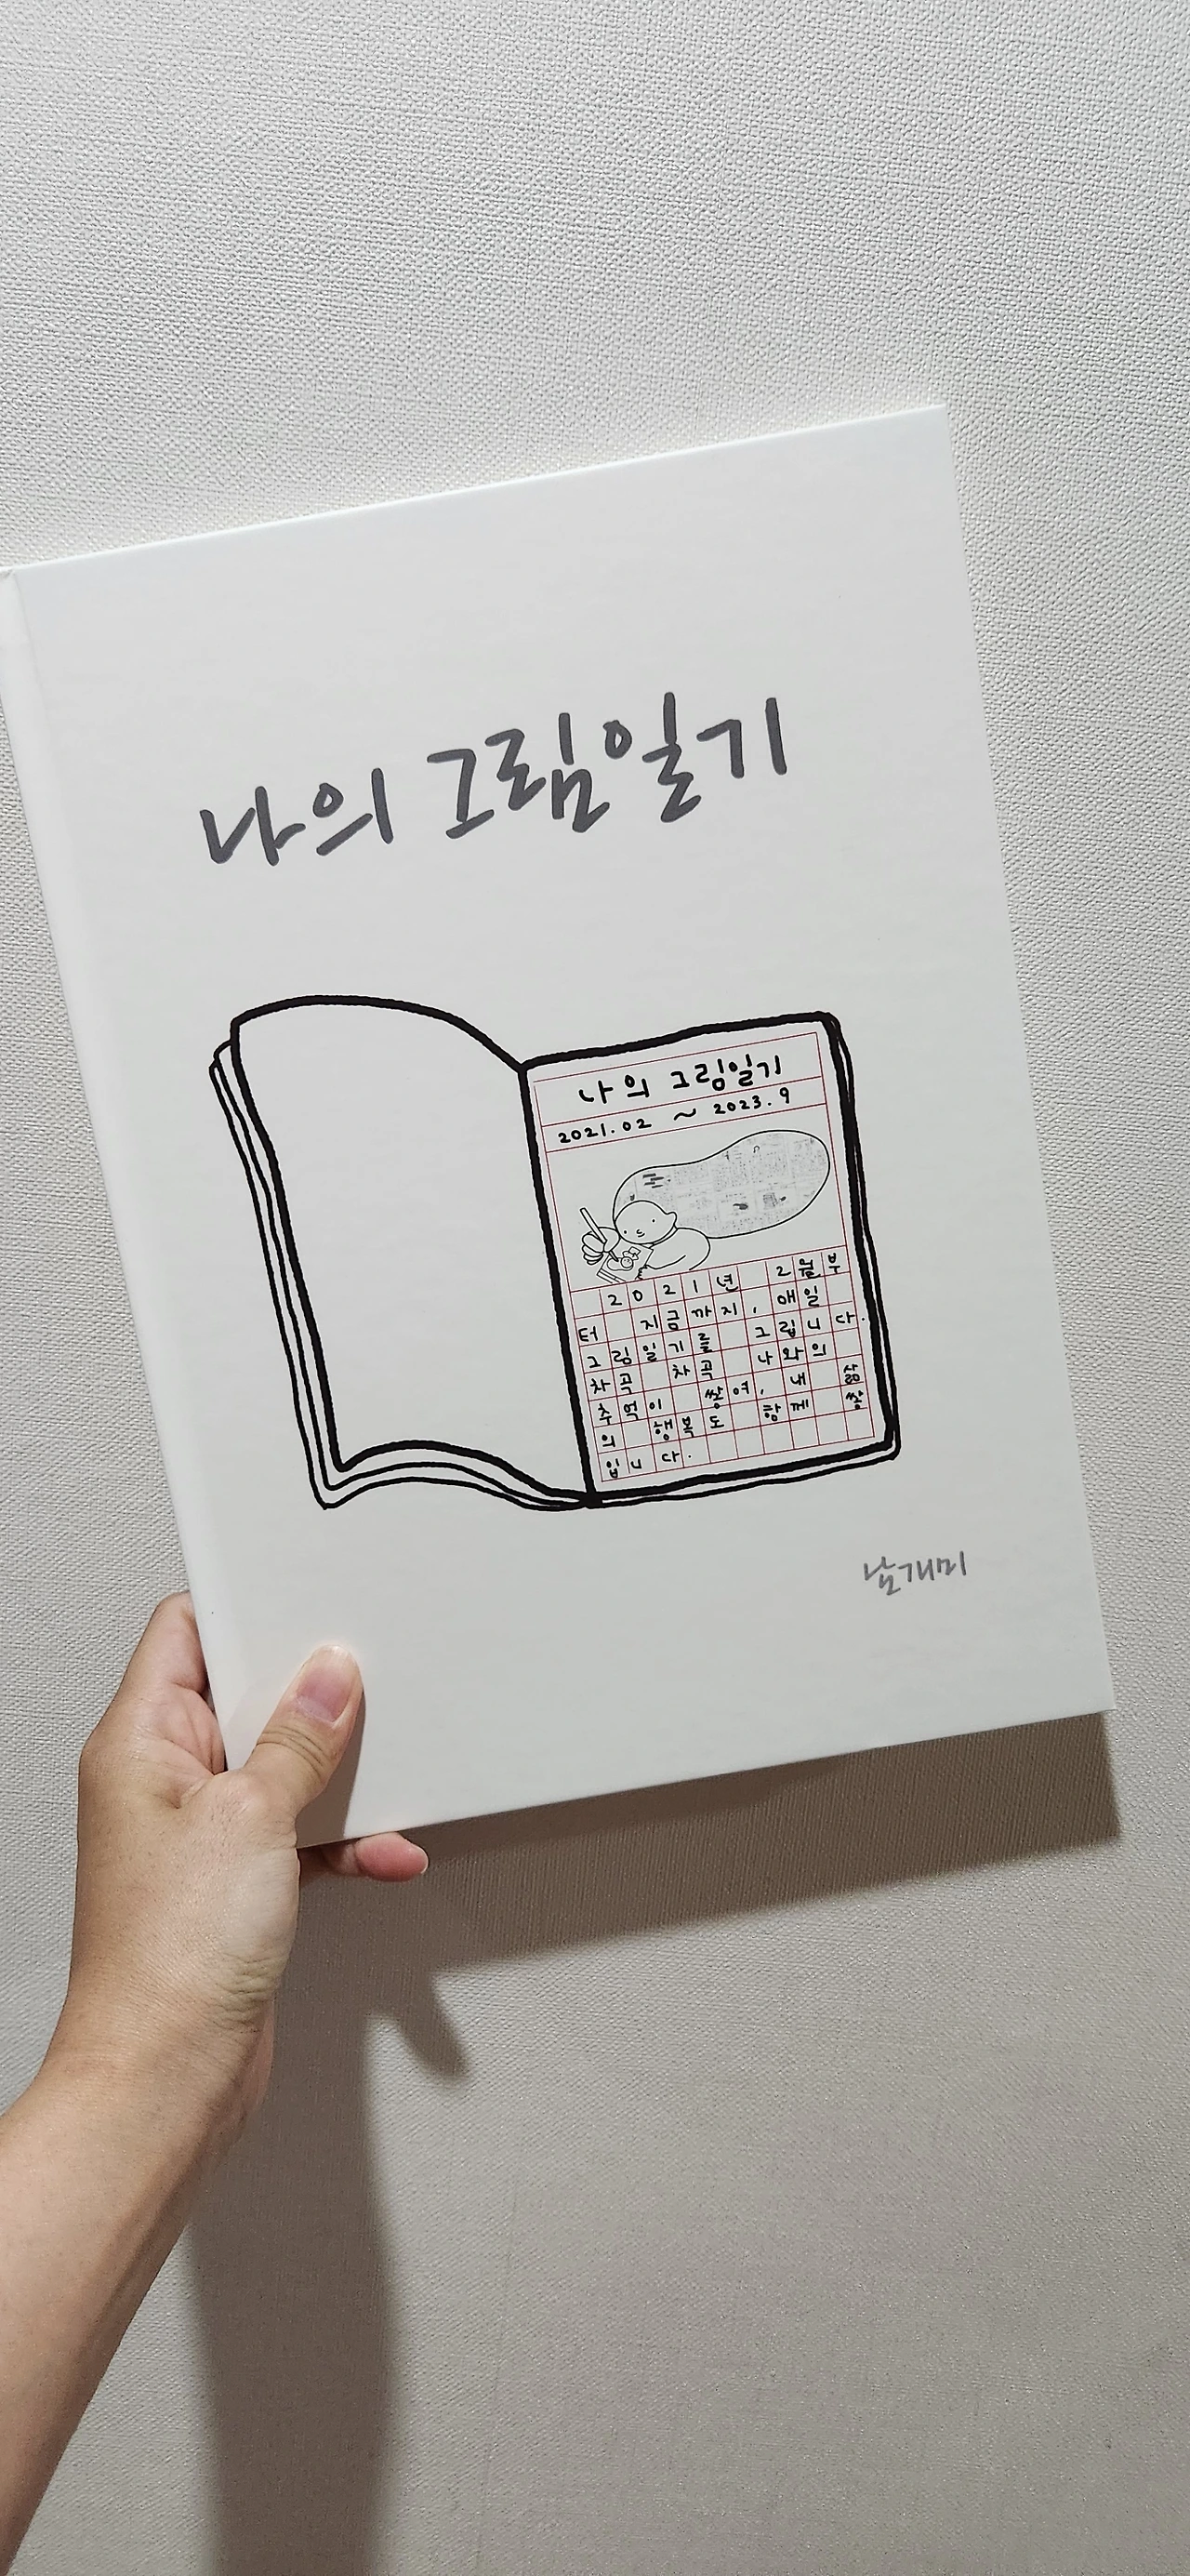 나의 그림일기
나의 그림일기
2021.02 ~ 2023.9
2021년 2월부
터 지금까지, 매일
그림일기를 그립니다.
차곡 차곡 나와의
추억이 쌓여, 내 삶
의 행복도 함께 쌓
입니다.
날개미